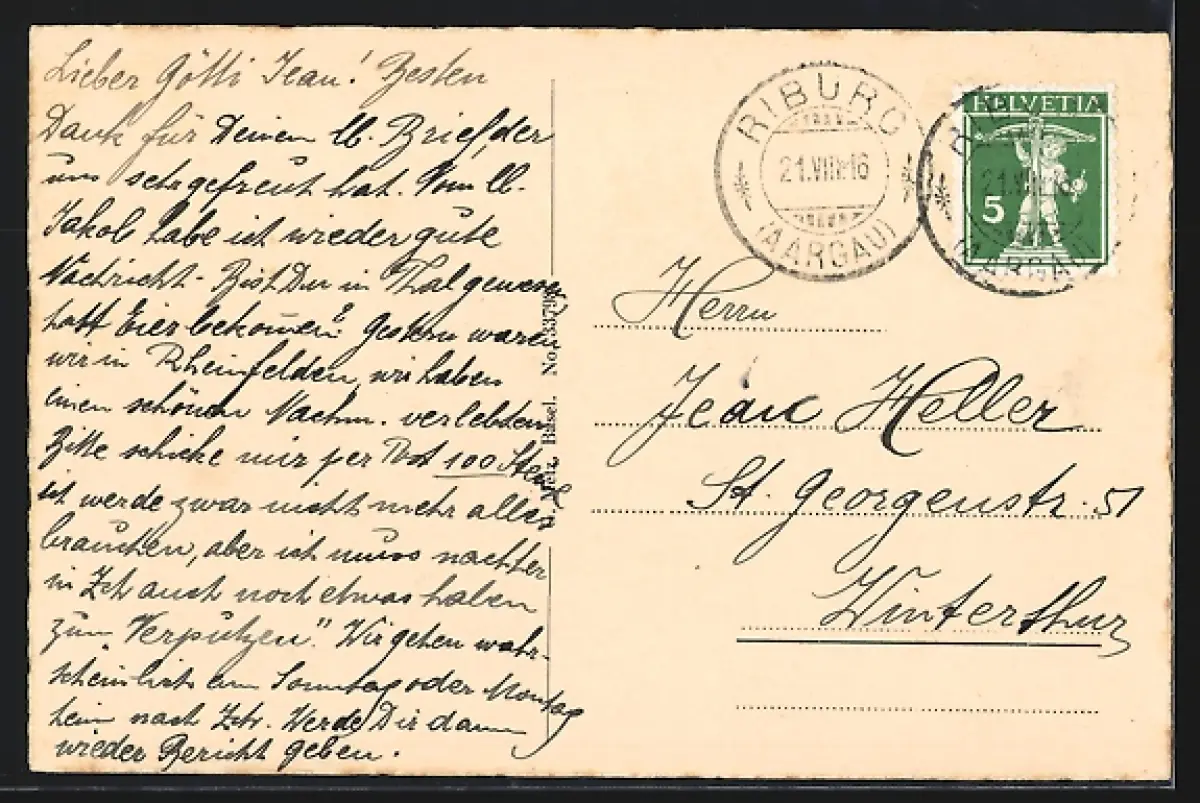 Lieber Götti Jean! Besten
Dank für Deinen lb. Brief, der
uns sehr gefreut hat. Vom lb.
Jakob habe ich wieder gute
Nachricht. Bist Du in Thal gewesen,
hatt Eier bekomen? Gestern waren
wir in Rheinfelden, wir haben
einen schönen Nachm. verlebten.
Bitte schicke mir per Post 100 Stück
ich werde zwar nicht mehr alles
brauchen, aber ich muss nachher
in Zch auch noch etwas haben
zum "Verputzen". Wir gehen wahr-
scheinlich am Sonntag oder Montag
heim nach Zch. Werde Dir dann
wieder Bericht geben.
Metz, Basel. No. 33798
RIBURG
21.VIII.16
(AARGAU)
HELVETIA
5
RIBURG
21.VIII.16
(AARGAU)
Herrn
Jean Heller
St. Georgenstr. 51
Winterthur